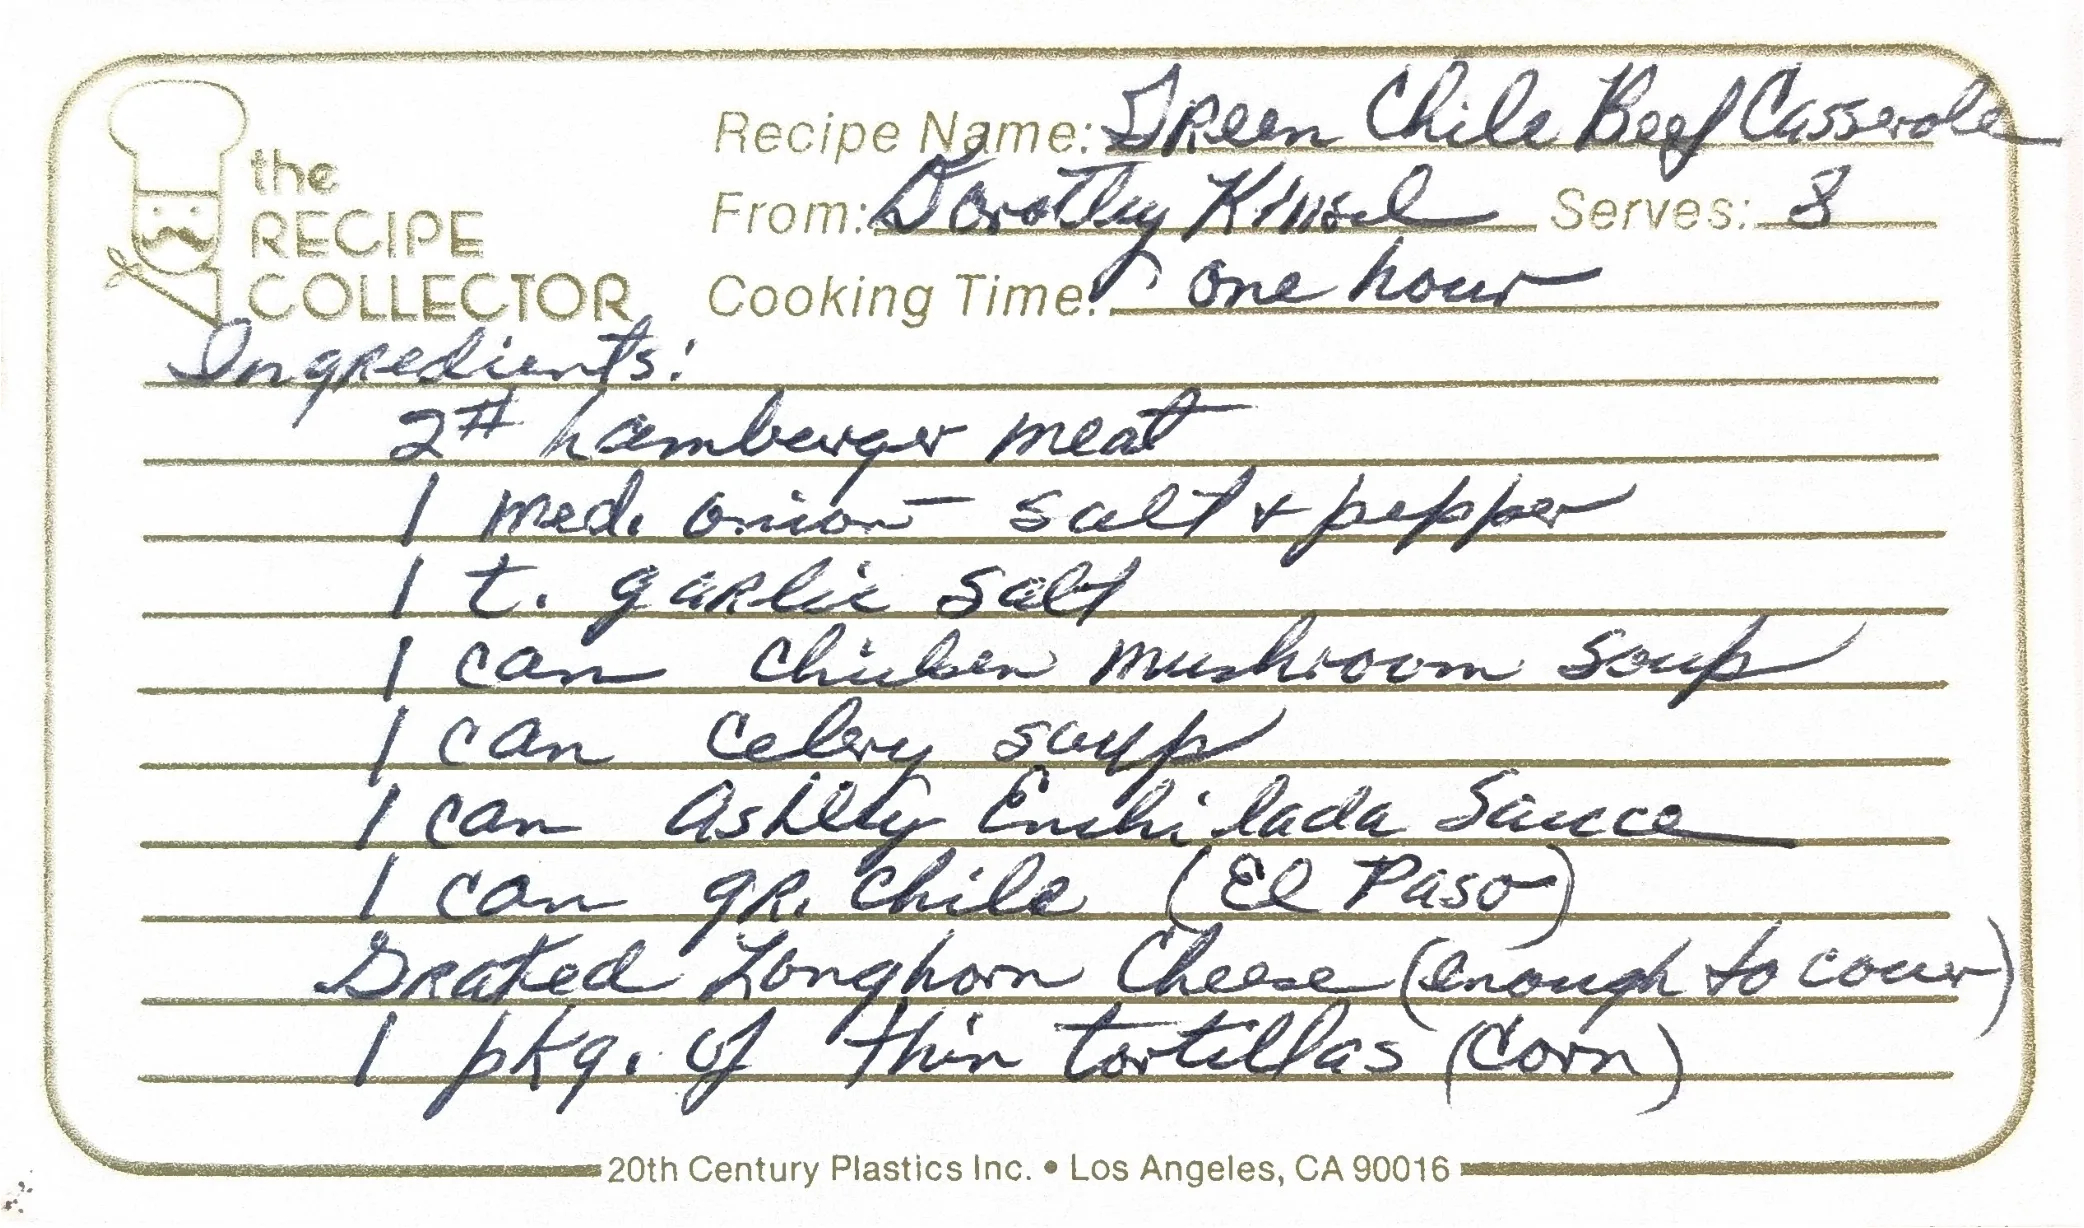 the
RECIPE
COLLECTOR
Recipe Name: Green Chile Beef Casserole
From: Dorothy Kinsel Serves: 8
Cooking Time: one hour
Ingredients:
2# hamberger meat
1 med. onion - salt & pepper
1 t. garlic salt
1 can chicken mushroom soup
1 can celery soup
1 can Ashley Enchilada Sauce
1 can gr. chile (El Paso)
Grated Longhorn Cheese (enough to cover)
1 pkg. of thin tortillas (Corn)
20th Century Plastics Inc. • Los Angeles, CA 90016